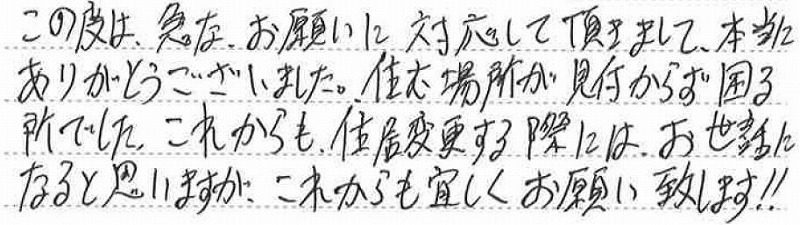 この度は、急な、お願いに対応して頂きまして、本当に
ありがとうございました。住む場所が見付からず困る
所でした。これからも、住居変更する際には、お世話に
なると思いますが、これからも宜しくお願い致します!!